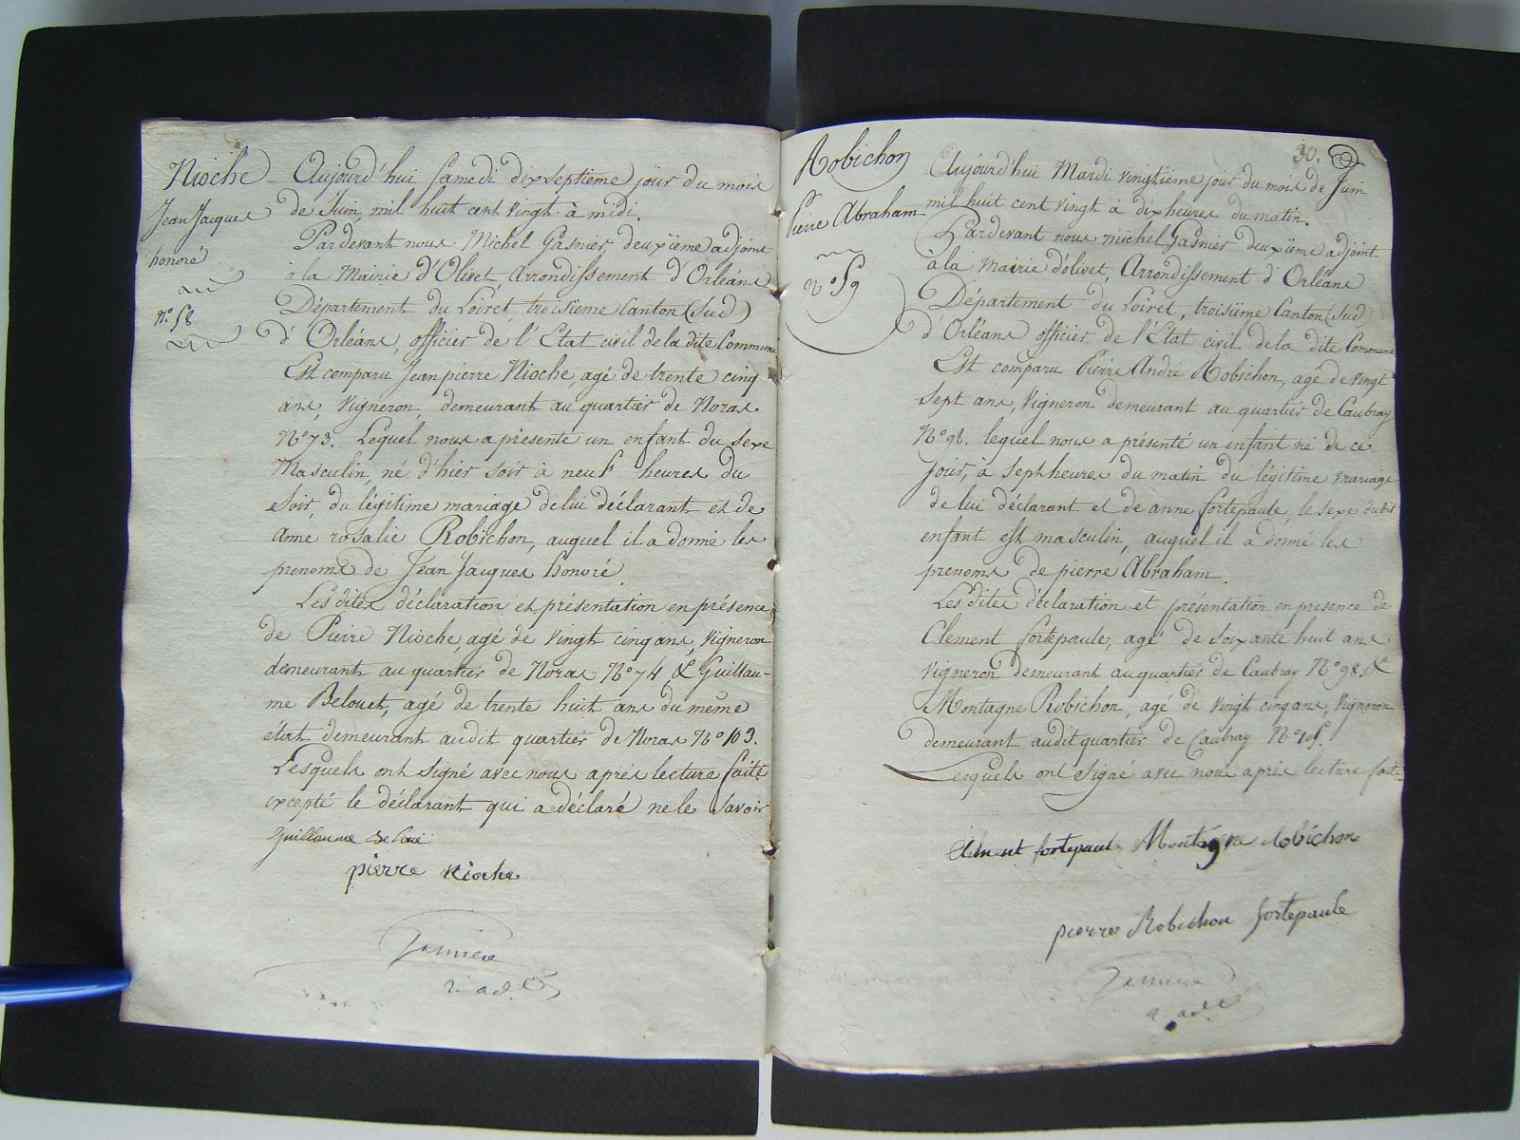 Nioche
Jean Jacques
honoré
N.º 58
Aujourd'hui Samedi dix septieme jour du mois
de Juin, mil huit cent vingt à midi.
Pardevant nous Michel Gasnier deuxième adjoint
à la Mairie d'Olivet, Arrondissement d'Orléans
Département du Loiret, troisieme Canton (Sud)
d'Orléans, officier de l'Etat civil de la dite Commune
Est comparu Jean pierre Nioche, agé de trente cinq
ans, Vigneron, demeurant au quartier de Noras
Nº 73. Lequel nous a présenté un enfant du Sexe
Masculin, né d'hier soir à neuf heures du
Soir, du légitime mariage de lui déclarant et de
Anne rosalie Robichon, auquel il a donné les
prenoms de Jean Jacques honoré.
Les dites déclaration et présentation en présence
de Pierre Nioche, agé de vingt cinq ans, Vigneron
demeurant au quartier de Noras Nº 74, & Guillau-
me Belouet, agé de trente huit ans du même
état demeurant audit quartier de Noras Nº 103.
Lesquels ont signé avec nous après lecture faite
excepté le déclarant qui a déclaré ne le Savoir
Guillaume
pierre Nioche
2. ad.
30.
Robichon
Pierre Abraham
Nº 59
Aujourd'hui Mardi vingtième jour du mois de Juin
mil huit cent vingt à dix heures du matin.
Pardevant nous Michel Gasnier deuxième adjoint
à la Mairie d'olivet, Arrondissement d'Orléans
Département du Loiret, troisième Canton (Sud)
d'Orléans officier de l'Etat civil de la dite Commune
Est comparu Pierre André Robichon, agé de vingt
sept ans, Vigneron demeurant au quartier de Caubray
Nº 98. lequel nous a présenté un enfant né de ce
jour, à sept heures du matin du légitime mariage
de lui déclarant et de anne fortepaule, le sexe dudit
enfant est masculin, auquel il a donné les
prenoms de pierre Abraham.
Les dites déclaration et présentation en presence de
Clement fortepaule, agé de soixante huit ans
Vigneron demeurant au quartier de Caubray Nº 98, &
Montagne Robichon, agé de vingt cinq ans, Vigneron
demeurant audit quartier de Caubray
Lesquels ont signé avec nous après lecture faite
Clement fortepaule Montagne Robichon
pierre Robichon fortepaule